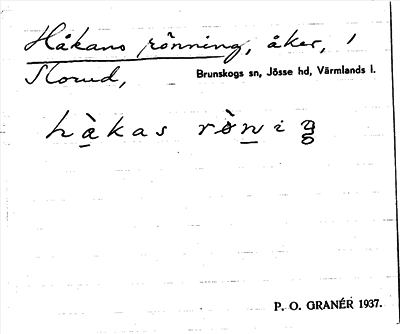 Håkans rönning, åker, 1
Slorud, Brunskogs sn, Jösse hd, Värmlands l.
hàkas ròniŋ
P. O. GRANÉR 1937.